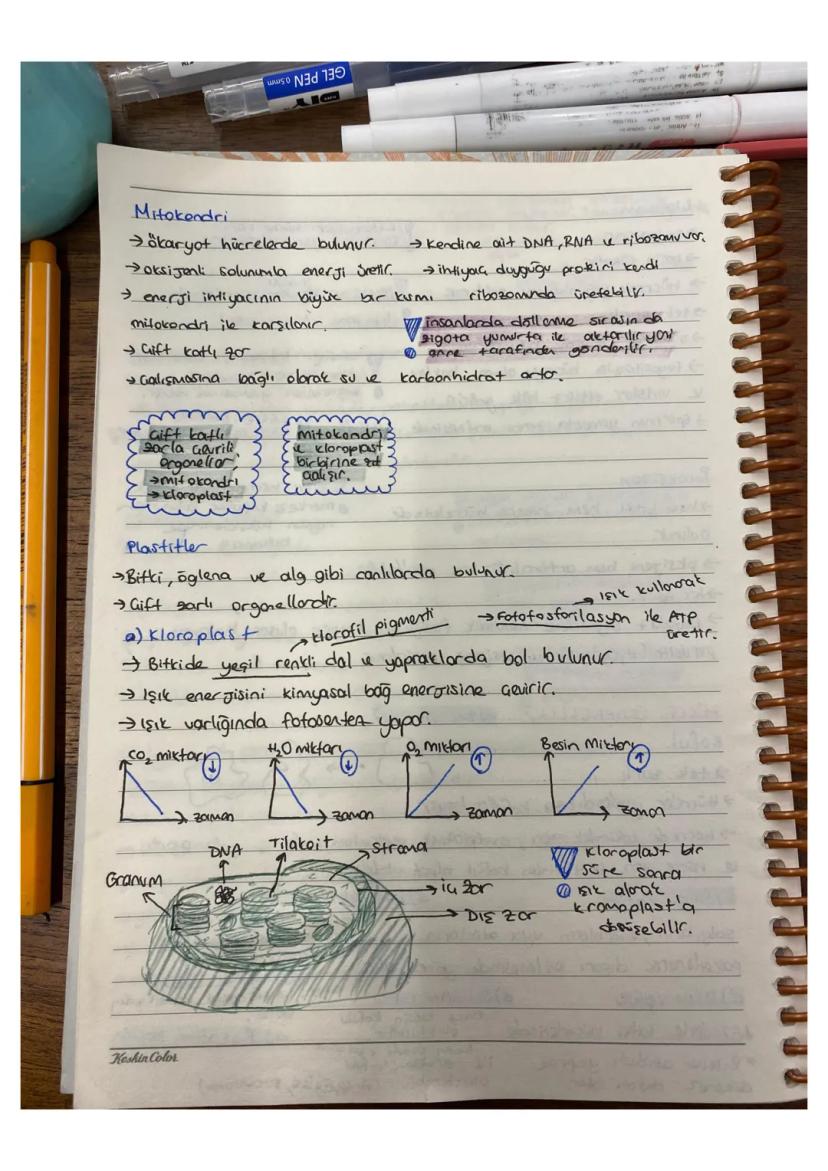 GEL PEN 0.5mm
Mitokondri
→ ökaryot hücrelerde bulunur.
→ oksijenli solunumla enerji üretir.
→ enerji ihtiyacının büyük bir kısmı
mitokondri ile karşılanır.
→ Çift katlı zar
→ Çalışmasına bağlı olarak su ve karbonhidrat artar.
→ kendine ait DNA, RNA ve ribozomu var.
→ ihtiyaç duyduğu proteini kendi
ribozomunda üretebilir.
insanlarda döllenme sırasında
zigota yumurta ile aktarılır yani
anne tarafından gönderilir.
Çift katlı
zarla çevrili
organeller;
→ mitokondri
→ kloroplast
mitokondri
ve kloroplast
birbirine zıt
çalışır.
Plastitler
→ Bitki, öglena ve alg gibi canlılarda bulunur.
→ Çift zarlı organellerdir.
a) Kloroplast
→ klorofil pigmenti
→ ışık kullanarak
→ Fotofosforilasyon ile ATP
üretir.
→ Bitkide yeşil renkli dal ve yapraklarda bol bulunur.
→ Işık enerjisini kimyasal bağ enerjisine çevirir.
→ Işık varlığında fotosentez yapar.
CO₂ miktarı ↓
zaman
H₂O miktarı ↓
zaman
O₂ miktarı ↑
zaman
Besin Miktarı ↑
zaman
DNA
Tilakoit
Stroma
Granum
iç zar
Dış zar
Kloroplast bir
süre sonra
ışık alarak
kromoplast'a
dönüşebilir.
Keskin Color